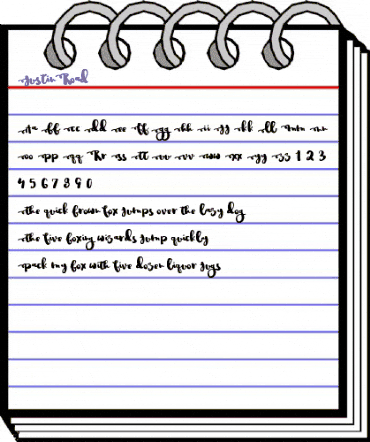 Justin Road
Aa bb cc dd ee ff gg hh ii jj kk ll mm nn
oo pp qq Rr ss tt uu vv ww xx yy zz 1 2 3
4 5 6 7 8 9 0
the quick brown fox jumps over the lazy dog
the five boxing wizards jump quickly
pack my box with five dozen liquor jugs